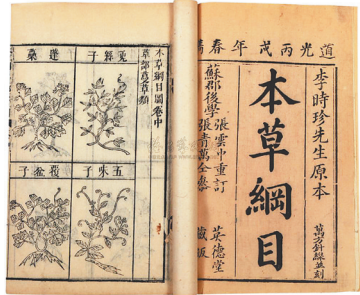 道光丙戌年春
李時珍先生原本
本草綱目
萬方針線並刻
張雲中重訂
蘇郡後學
張青萬仝參
英德堂
藏版
本草綱目圖卷中
草部蔓草類
菟絲子
蓬蘽
五味子
覆盆子